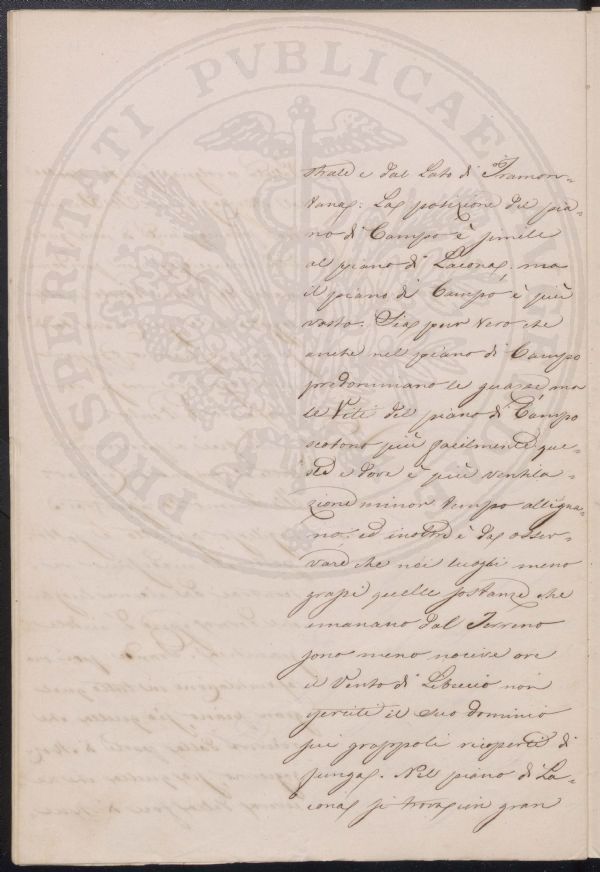 PROSPERITATI PVBLICAE
strale e dal Lato di Tramon-
tana: La posizione del pia-
no di Campo è simile
al piano di Lacona: ma
il piano di Campo è più
vasto. Sia pur vero che
anche nel piano di Campo
predominano le guazze ma
le Viti del piano di Campo
scotono più facilmente que-
ste e dove è più ventila-
zione minor tempo allignia-
no, ed inoltre è da osser-
vare che nei luoghi meno
grassi quelle sostanze che
emanano dal Terreno
sono meno nocive ove
il Vento di Libeccio non
eserciti il suo dominio
sui grappoli ricoperti di
funga. Nel piano di La-
cona si trova un gran